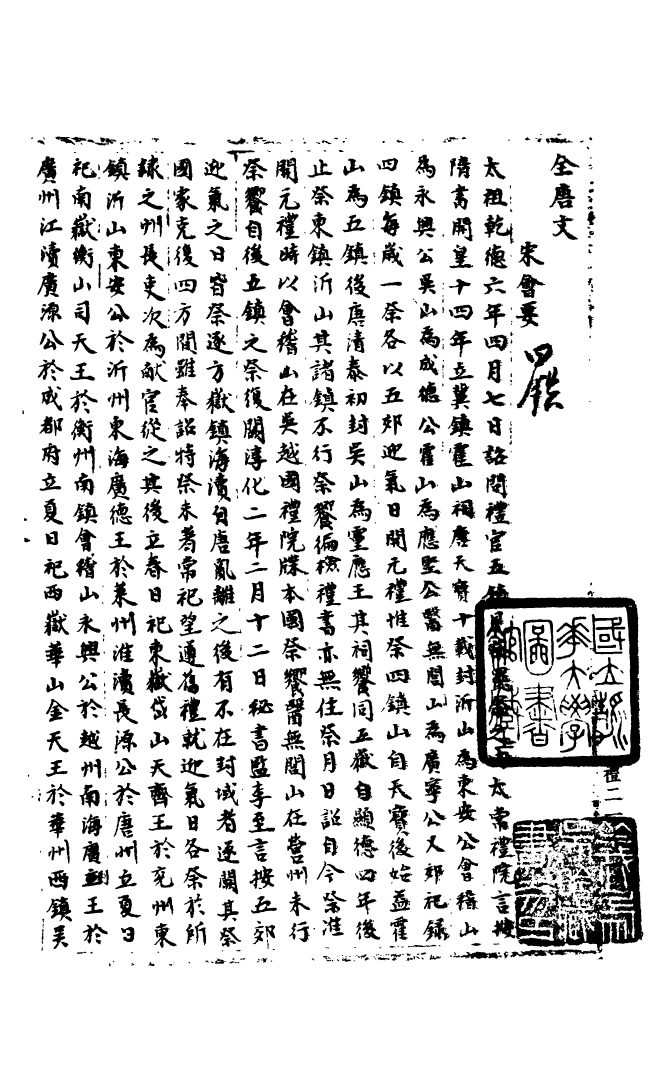 全唐文
宋會要
四鎮
太祖乾德六年四月七日詔問禮官五鎮太常禮院言按
隋書開皇十四年立冀鎮霍山祠唐天寶十載封沂山為東安公會稽山
為永興公吳山為成德公霍山為應聖公醫無閭山為廣寧公又郊祀錄
四鎮每歲一祭各以五郊迎氣日開元禮惟祭四鎮山自天寶後始益霍
山為五鎮後唐清泰初封吳山為靈應王其祠饗同五嶽自顯德四年後
止祭東鎮沂山其諸鎮不行祭饗徧檢禮書亦無住祭月日詔自今祭准
開元禮時以會稽山在吳越國禮院牒本國祭饗醫無閭山在營州未行
祭饗自後五鎮之祭復闕淳化二年二月十二日秘書監李至言按五郊
迎氣之日皆祭逐方嶽鎮海瀆自唐亂離之後有不在封域者遂闕其祭
國家克復四方間雖奉詔特祭未著常祀望遵舊禮就迎氣日各祭於所
隸之州長吏次為獻官從之其後立春日祀東嶽岱山天齊王於兗州東
鎮沂山東安公於沂州東海廣德王於萊州淮瀆長源公於唐州立夏日
祀南嶽衡山司天王於衡州南鎮會稽山永興公於越州南海廣利王於
廣州江瀆廣源公於成都府立夏日祀西嶽華山金天王於華州西鎮吳
禮二